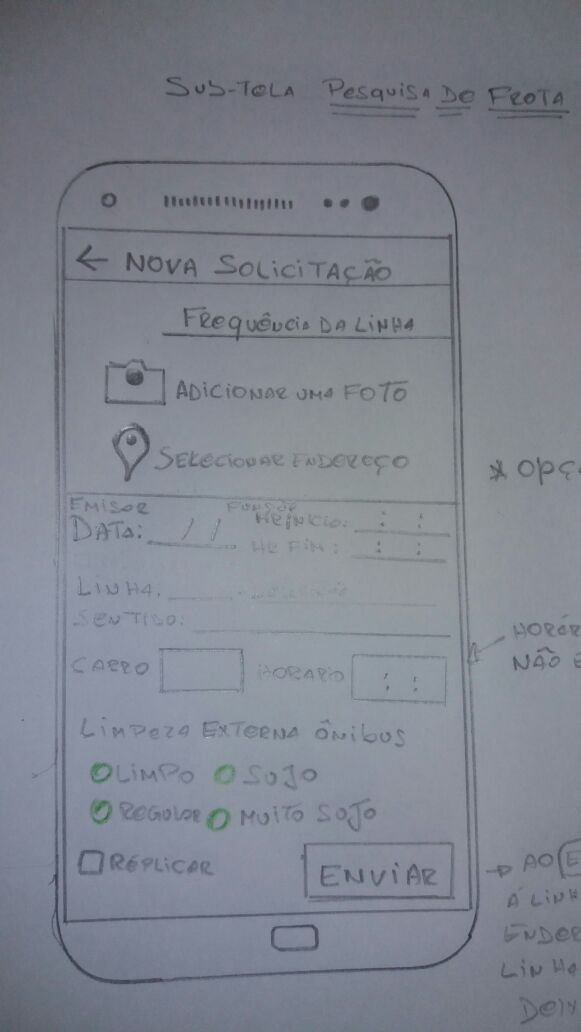 SUB-TELA PESQUISA DE FROTA
← NOVA SOLICITAÇÃO
FREQUÊNCIA DA LINHA
ADICIONAR UMA FOTO
SELECIONAR ENDEREÇO
* OPÇ
EMISOR
DATA: / / HR INICIO: : :
HR FIM: : :
LINHA:
SENTIDO:
HORÁR
NÃO E
CARRO HORARIO : :
LIMPEZA EXTERNA ÔNIBUS
LIMPO SUJO
REGULAR MUITO SUJO
REPLICAR ENVIAR
→ AO E
A LINH
ENDER
LINHA
DEIX